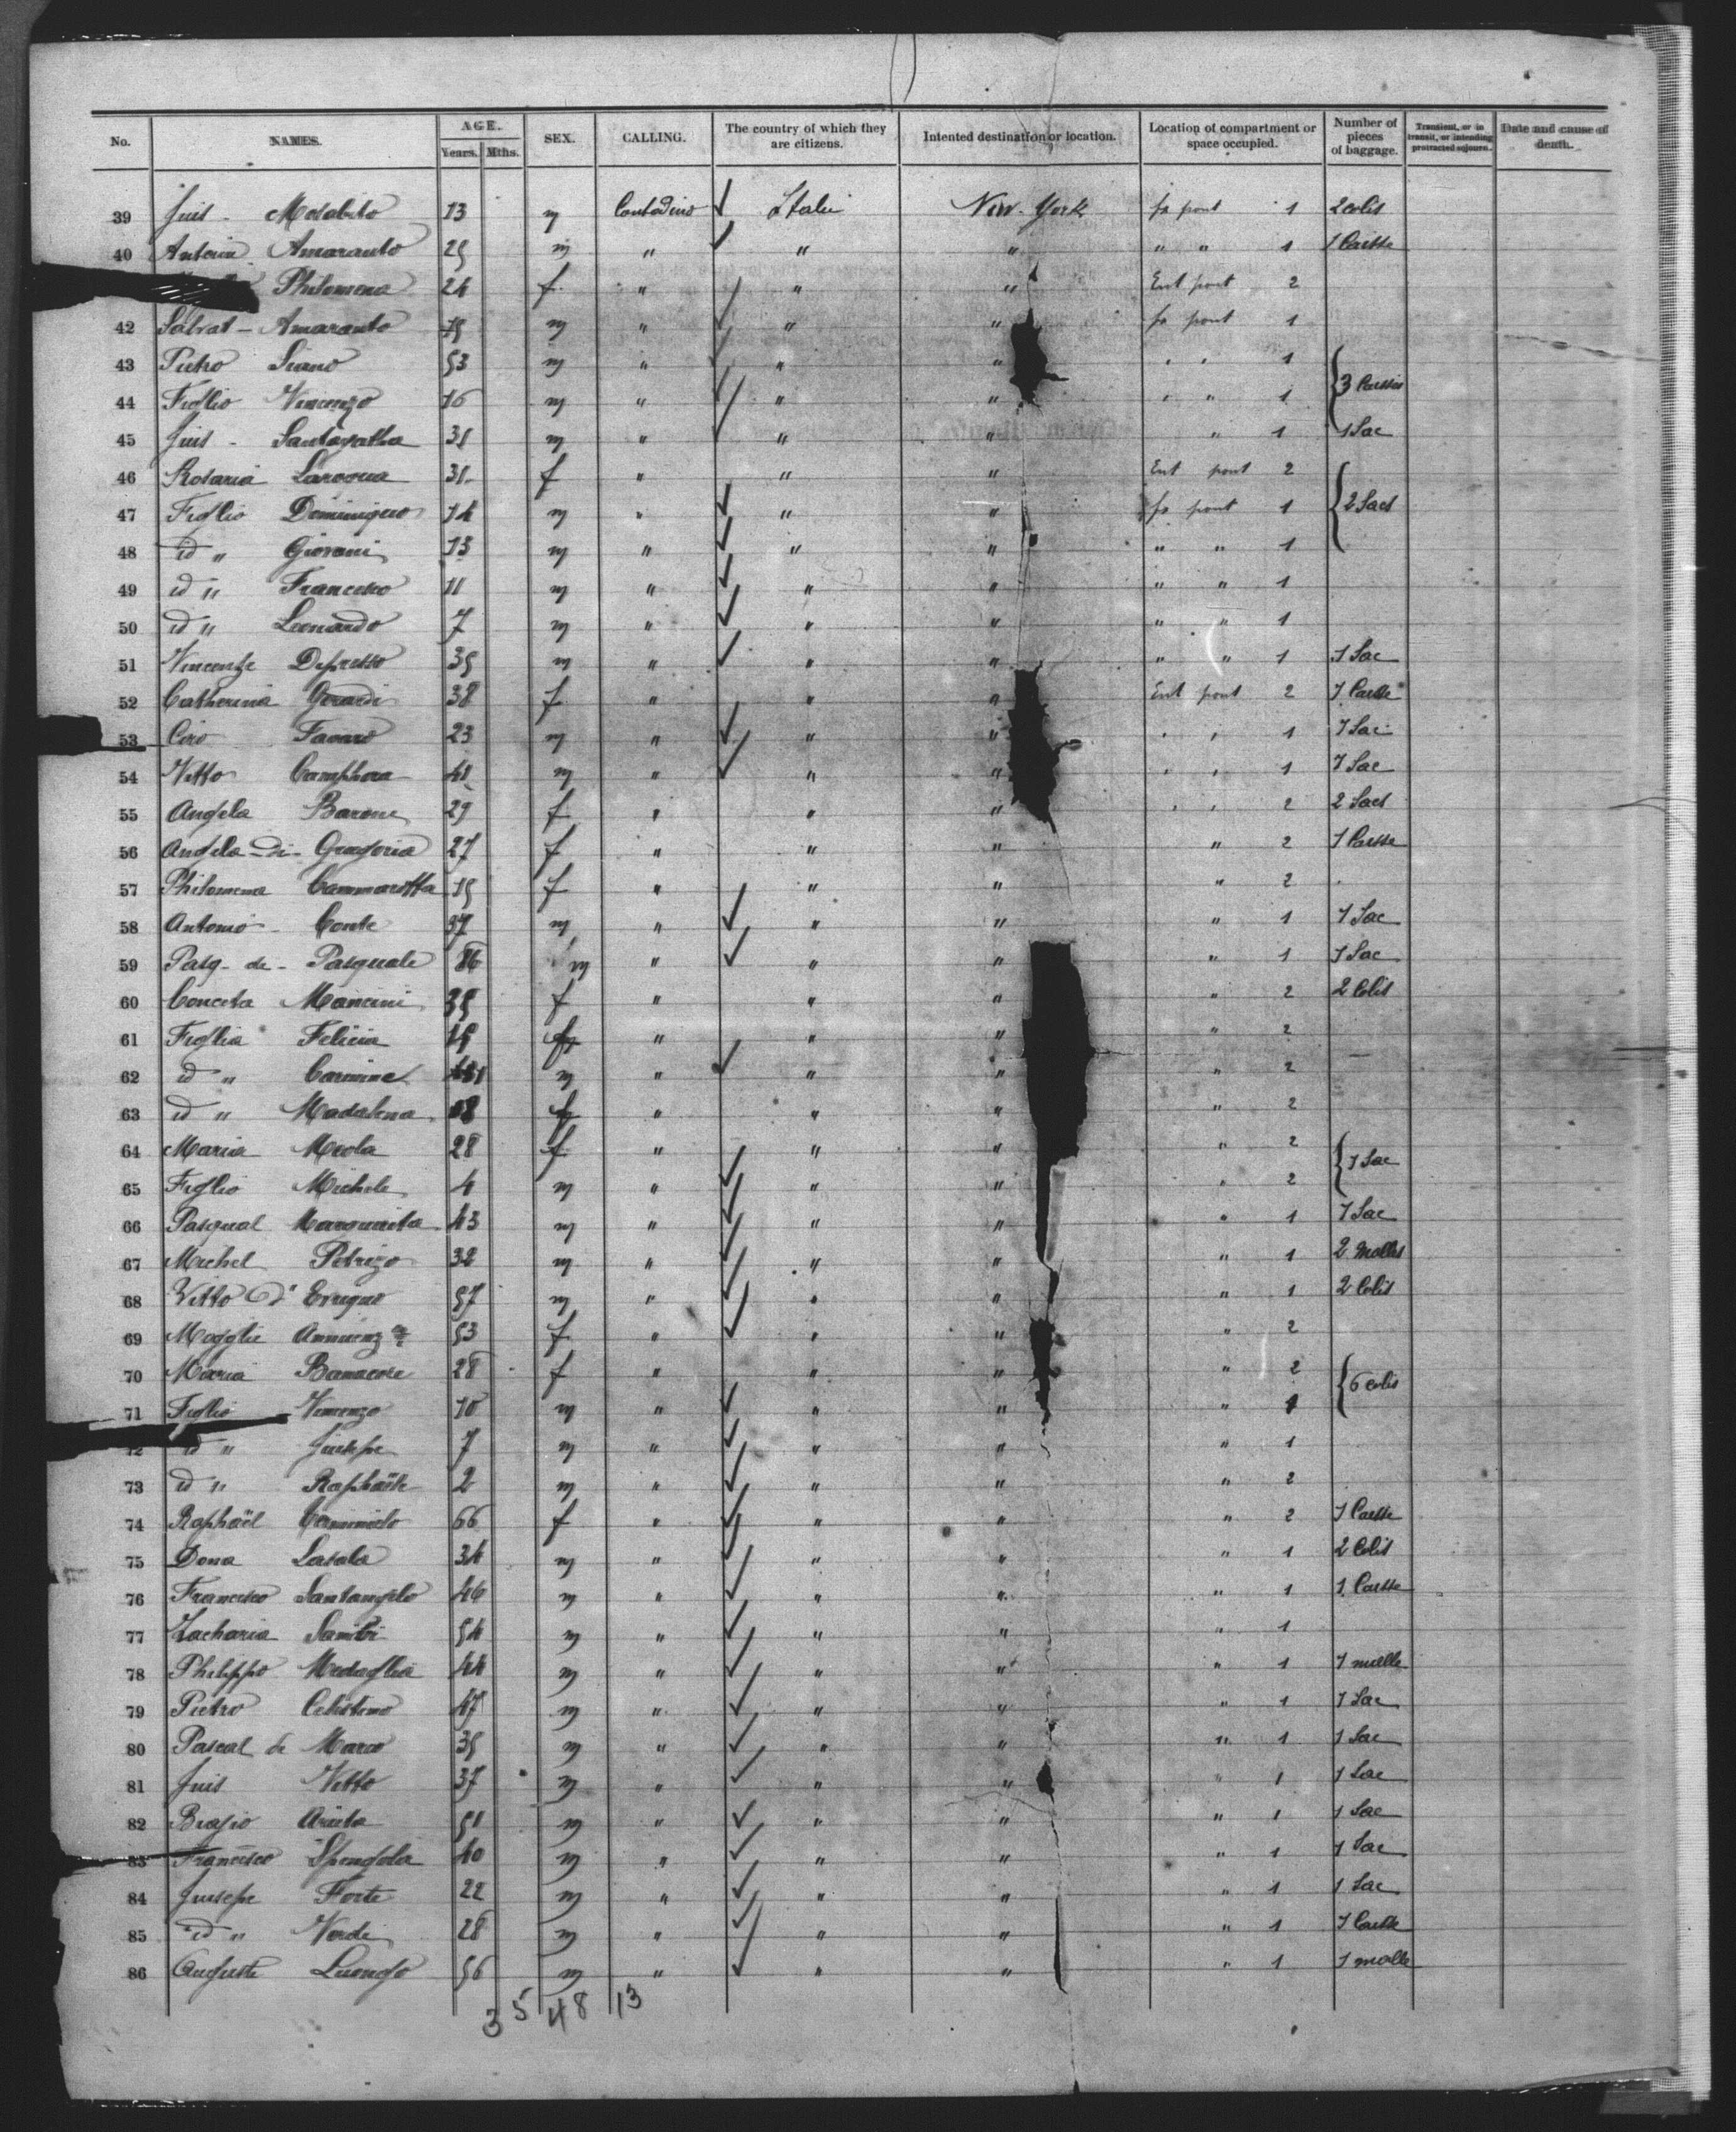 No. NAMES. AGE. Years. Mths. SEX. CALLING. The country of which they are citizens. Intented destination or location. Location of compartment or space occupied. Number of pieces of baggage. Transient, or in transit, or intending protracted sojourn. Date and cause of death.
39 Juis - 13 m Contadino Italie New-York pont 1 2 colis
40 Amaranto 25 m " " " " " 1 1 Caisse
Philomena 24 f " " " Ent pont 2
42 Salvat - Amaranto m " " " pont 1
43 Pietro Siano 53 m " " " " " 1
44 Figlio Vincenzo 16 m " " " " " 1 3 Caisses
45 Juis - Santagatha m " " " " 1 1 Sac
46 Rosaria f " " " Ent pont 2
47 Figlio Dominiquo 14 m " " " pont 1 2 Sacs
48 id " Giovani 13 m " " " " " 1
49 id " Francesco 11 m " " " " " 1
50 id " Leonardo 7 m " " " " " 1
51 35 m " " " " " 1 1 Sac
52 Catherina Gerardi 38 f " " " Ent pont 2 1 Caisse
53 Ciro Favaro 23 m " " " " " 1 1 Sac
54 Vitto Camphora m " " " " " 1 1 Sac
55 Angela Barone f " " " " " 2 2 Sacs
56 Angela - di - Gregoria 27 f " " " " 2 1 Caisse
57 Philomena Cammarotta 15 f " " " " 2
58 Antonio Conte 37 m " " " " 1 1 Sac
59 Pasq - de - Pasquale m " " " " 1 1 Sac
60 Conceta Mancini f " " " " 2 2 Colis
61 Figlia Felicia " " " " 2
62 id " Carmine m " " " " 2
63 id " Madalena " " " " 2
64 Maria Meola 28 f " " " " 2
65 Figlio Michele 4 m " " " " 2 1 Sac
66 Pasqual 43 m " " " " 1 1 Sac
67 Michel Petrizo 32 m " " " " 1 2 Malles
68 Vitto d' Errique 57 m " " " " 1 2 Colis
69 Moglie 53 f " " " " 2
70 Maria 28 f " " " " 2
71 Figlio Vincenzo 10 m " " " " 1 6 colis
72 id " Jiusepe 7 m " " " " 1
73 id " Raphaële 2 m " " " " 2
74 Raphaël 66 f " " " " 2 1 Caisse
75 Dona Lasala 34 m " " " " 1 2 Colis
76 Francesco Santangelo 46 m " " " " 1 1 Caisse
77 Zacharia 54 m " " " " 1
78 Philippo Medaglia 44 m " " " " 1 1 malle
79 Pietro Celestino 47 m " " " " 1 1 Sac
80 Pascal de Marco 35 m " " " " 1 1 Sac
81 Juis Vitto 37 m " " " " 1 1 Sac
82 Biagio 51 m " " " " 1 1 Sac
83 Francesco Spengola 40 m " " " " 1 1 Sac
84 Jiusepe Forte 22 m " " " " 1 1 Sac
85 id " Verdi 28 m " " " " 1 1 Caisse
86 Auguste Luongo 56 m " " " " 1 1 malle
35 48 13